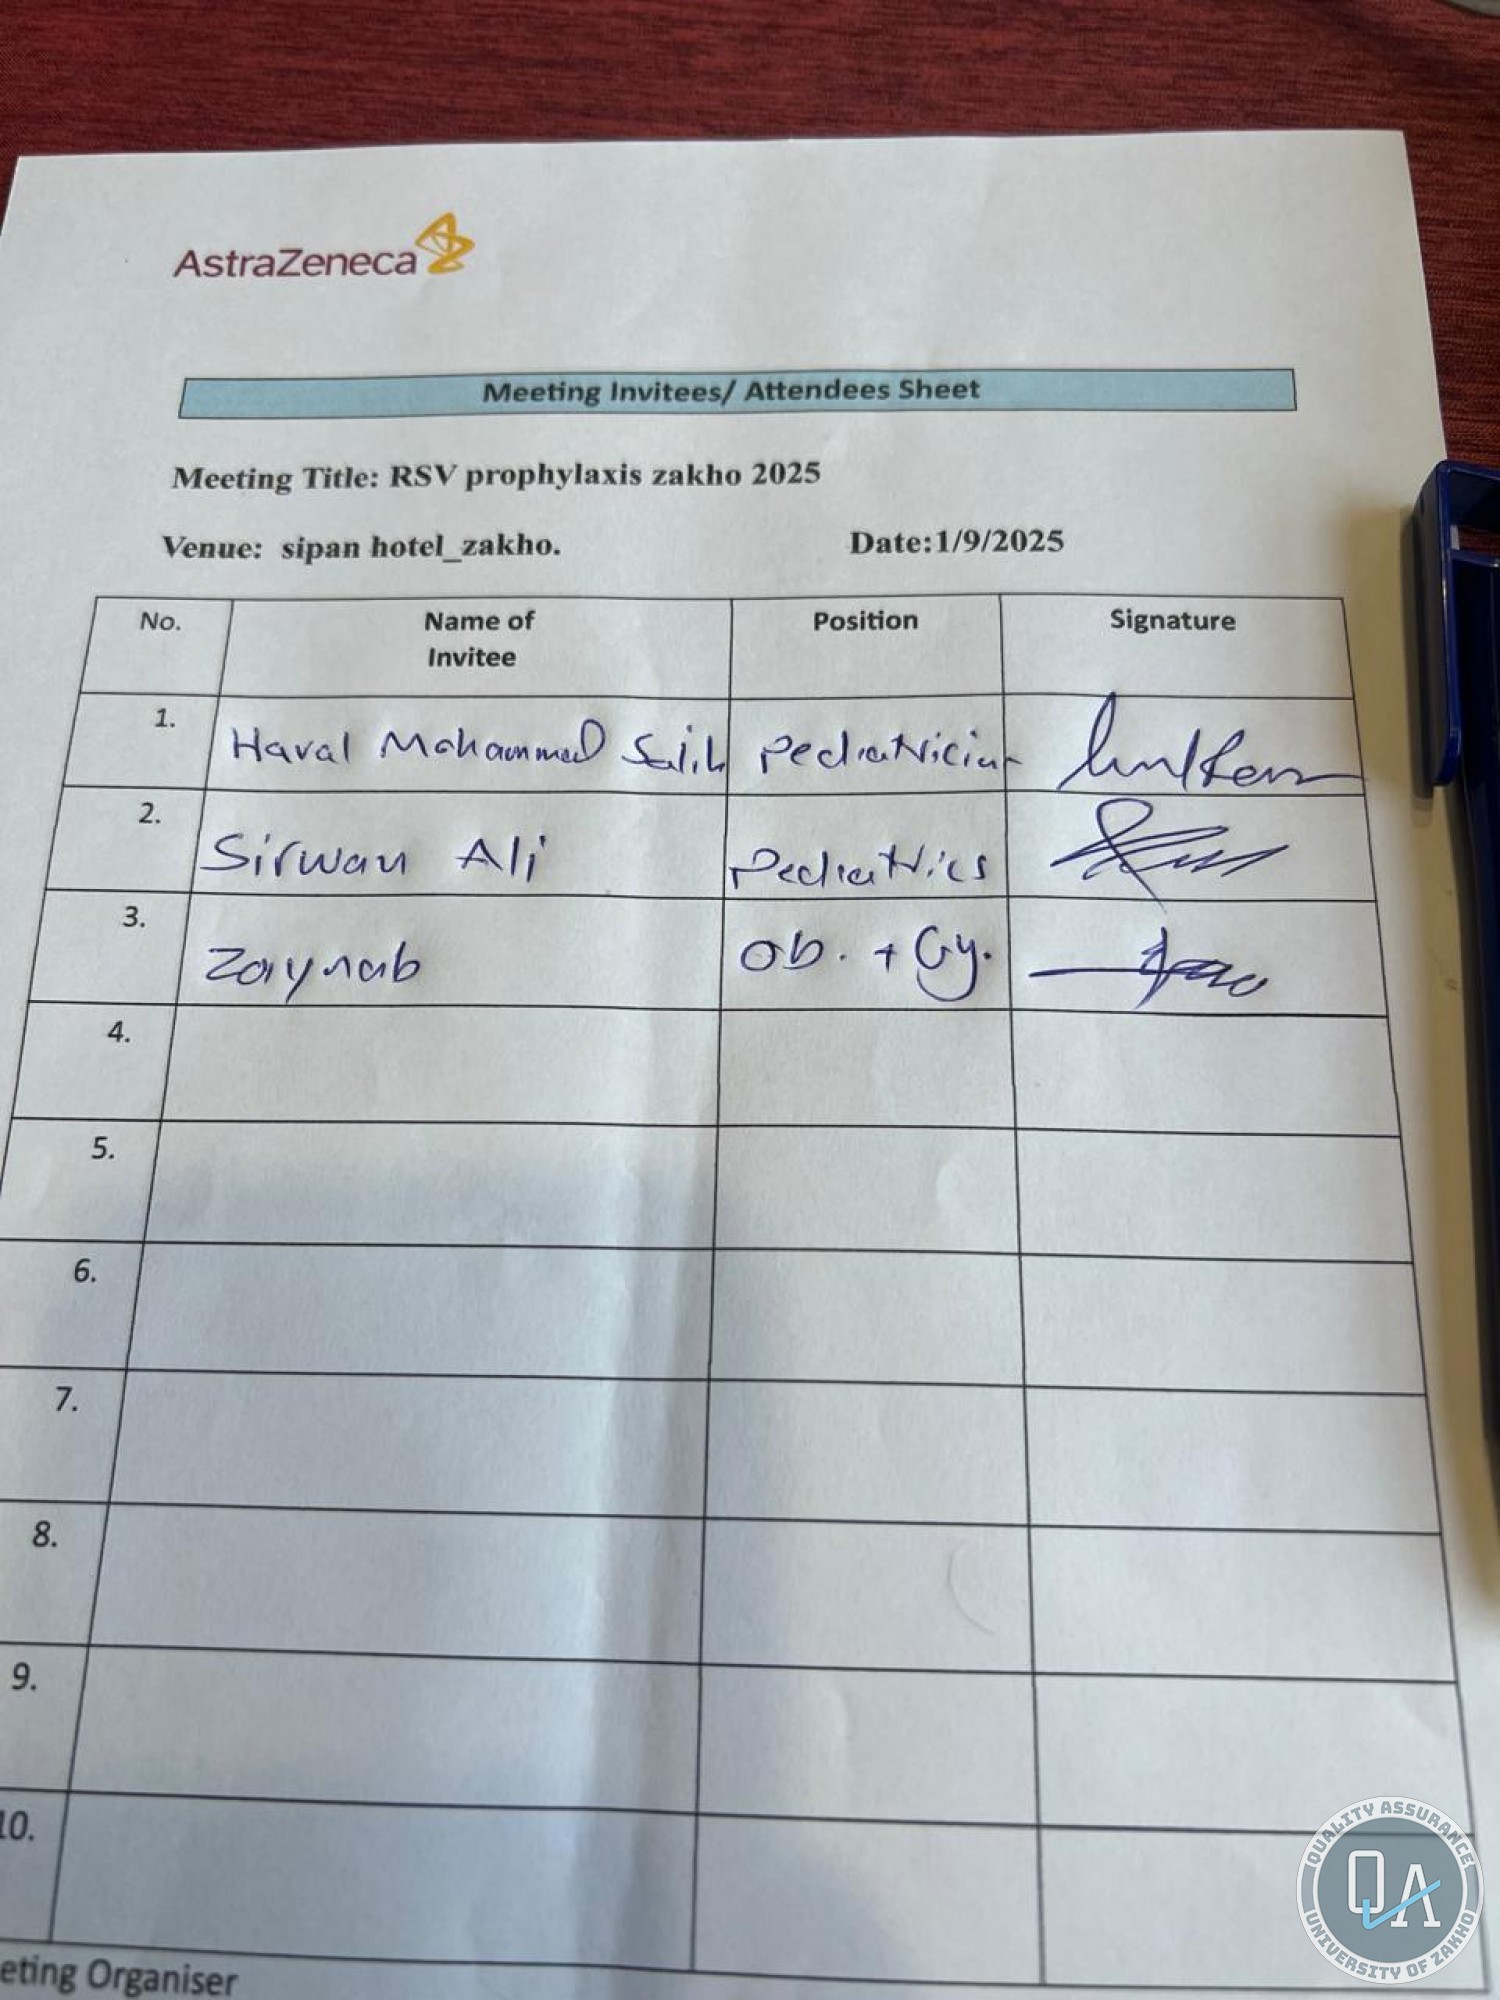 AstraZeneca
Meeting Invitees/ Attendees Sheet
Meeting Title: RSV prophylaxis zakho 2025
Venue: sipan hotel_zakho. Date:1/9/2025
No. Name of Invitee Position Signature
1. Haval Mohammed Salih Pediatrician
2. Sirwan Ali Pediatrics
3. Zaynab Ob. + Gy.
4.
5.
6.
7.
8.
9.
10.
eting Organiser
QUALITY ASSURANCE
QA
UNIVERSITY OF ZAKHO